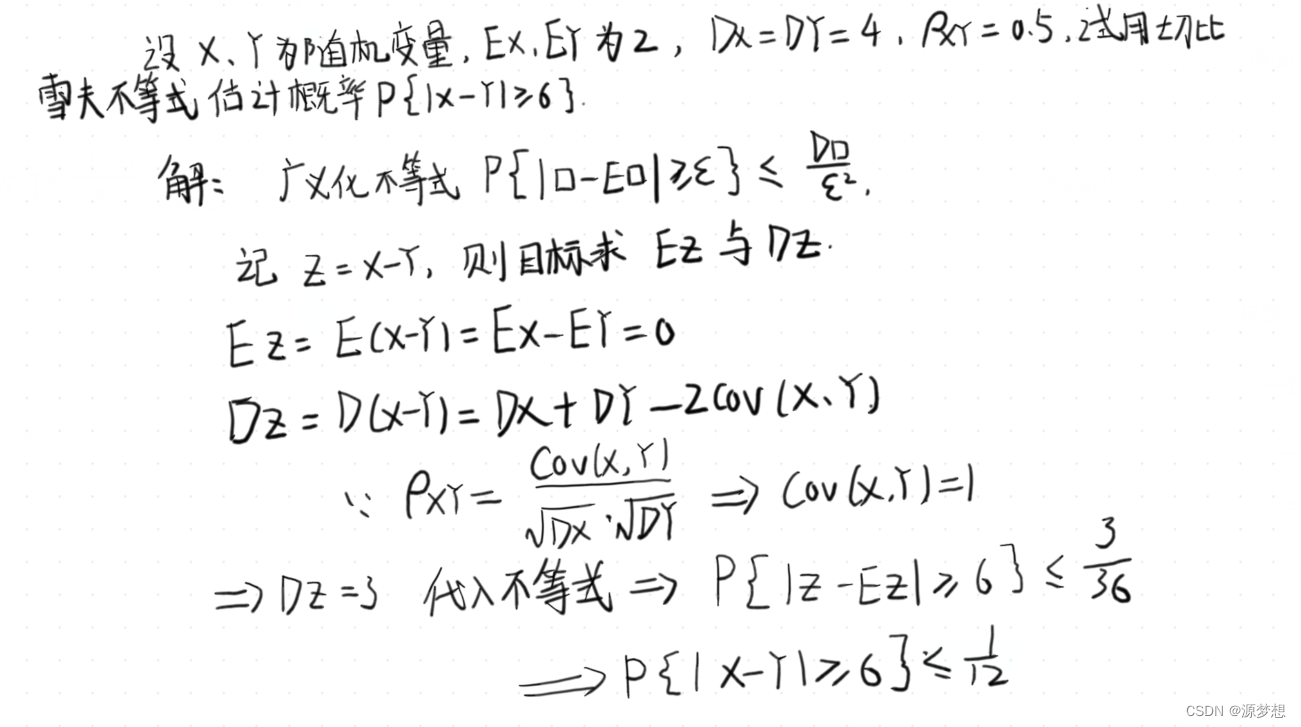 设 X、Y 为随机变量, EX, EY 为 2, DX = DY = 4, ρXY = 0.5, 试用切比
雪夫不等式估计概率 P{|X-Y|≥6}.
解: 广义化不等式 P{|□-E□|≥ε} ≤ D□/ε²,
记 Z = X-Y, 则目标求 EZ 与 DZ.
EZ = E(X-Y) = EX-EY = 0
DZ = D(X-Y) = DX + DY - 2Cov(X、Y)
∵ ρXY = Cov(X,Y)/√DX·√DY ⇒ Cov(X,Y)=1
⇒ DZ = 3 代入不等式 ⇒ P{|Z-EZ|≥6} ≤ 3/36
⇒ P{|X-Y|≥6} ≤ 1/12
CSDN @源梦想